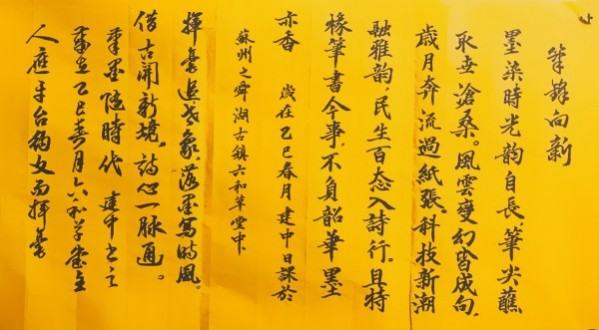 筆鋒向新
墨染時光韵自長筆尖蘸
取世滄桑。風雲變幻皆成句,
歲月奔流過紙張。科技新潮
融雅韵,民生百态入詩行。且持
椽筆書今事,不負韶華墨
亦香 歲在乙巳春月建中日課於
蘇州之舜湖古鎮六和草堂中
揮毫追象,落墨寫時風。
借古開新境,詩心一脉通。
筆墨隨時代 建中書之
歲在乙巳春月六和草堂主
人應平台約文而揮毫